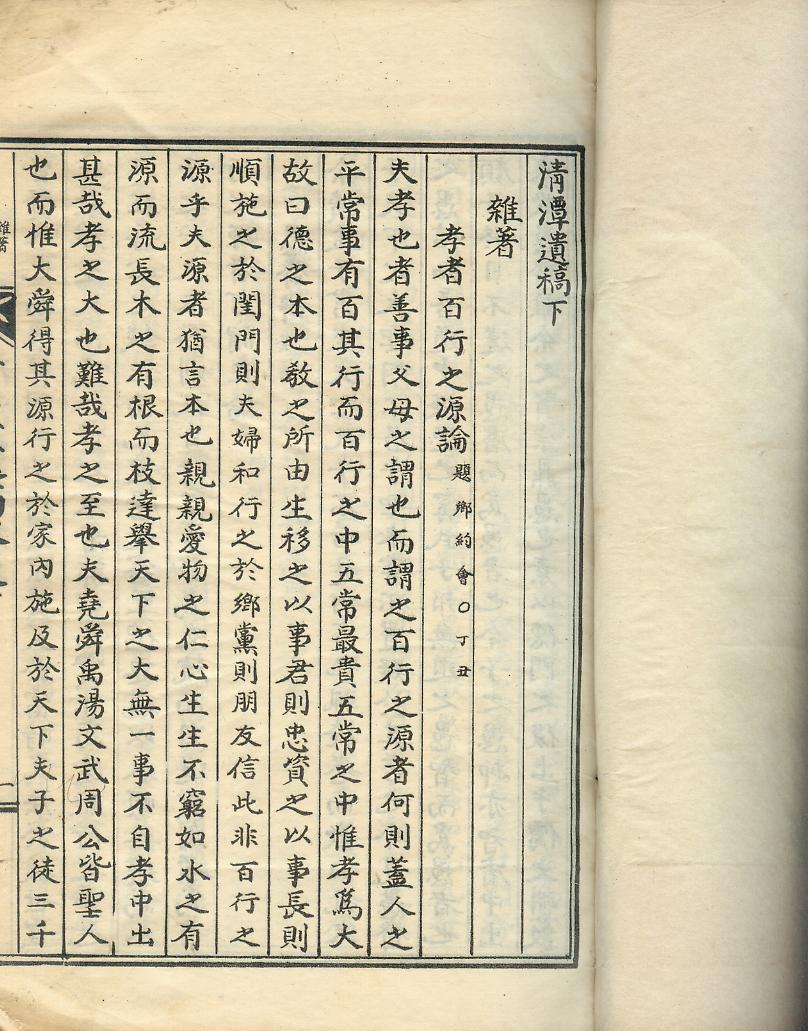 清潭遺稿下
雜著
孝者百行之源論 題鄉約會○丁丑
夫孝也者善事父母之謂也而謂之百行之源者何則蓋人之
平常事有百其行而百行之中五常最貴五常之中惟孝爲大
故曰德之本也敎之所由生移之以事君則忠資之以事長則
順施之於閨門則夫婦和行之於鄉黨則朋友信此非百行之
源乎夫源者猶言本也親親愛物之仁心生生不窮如水之有
源而流長木之有根而枝達擧天下之大無一事不自孝中出
甚哉孝之大也難哉孝之至也夫堯舜禹湯文武周公皆聖人
也而惟大舜得其源行之於家內施及於天下夫子之徒三千
雜著